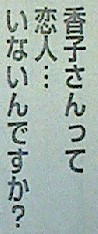 香子さんって
恋人…
いないんですか?